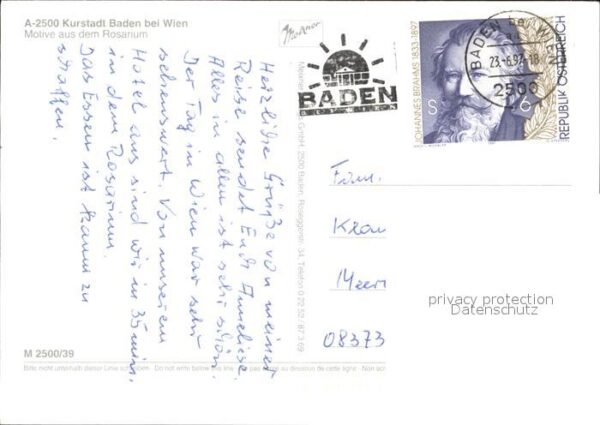 A-2500 Kurstadt Baden bei Wien
Motive aus dem Rosarium
Herzliche Grüße von meiner
Reise sendet Euch Anneliese.
Alles in allem ist sehr schön.
Der Tag in Wien war sehr
sehenswert. Von unserem
Hotel aus sind wir in 35 min.
in dem Rosarium.
Das Essen ist kaum zu
schaffen.
M 2500/39
Bitte nicht unterhalb dieser Linie schreiben - Do not write below this line - pas écrire au dessous de cette ligne - Non
GmbH, 2500 Baden, Roseggerstr. 34, Telefon 0 22 52 / 87 3 69
BADEN
BADEN bei WIEN
23.-6.97-18
2500
JOHANNES BRAHMS 1833-1897
S 6
REPUBLIK ÖSTERREICH
Fam.
Kron
Meer
08373
privacy protection
Datenschutz